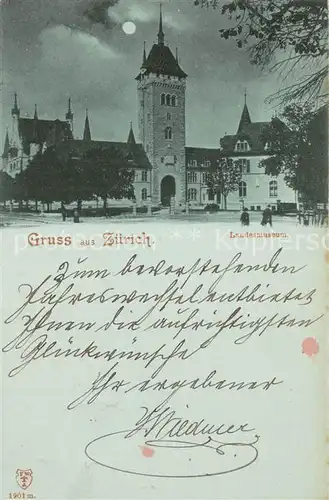 Gruss aus Zürich.
Landesmuseum.
Zum bevorstehenden
Jahreswechsel entbietet
Ihnen die aufrichtigsten
Glückwünsche
Ihr ergebener
Wiedmer
1901 m.